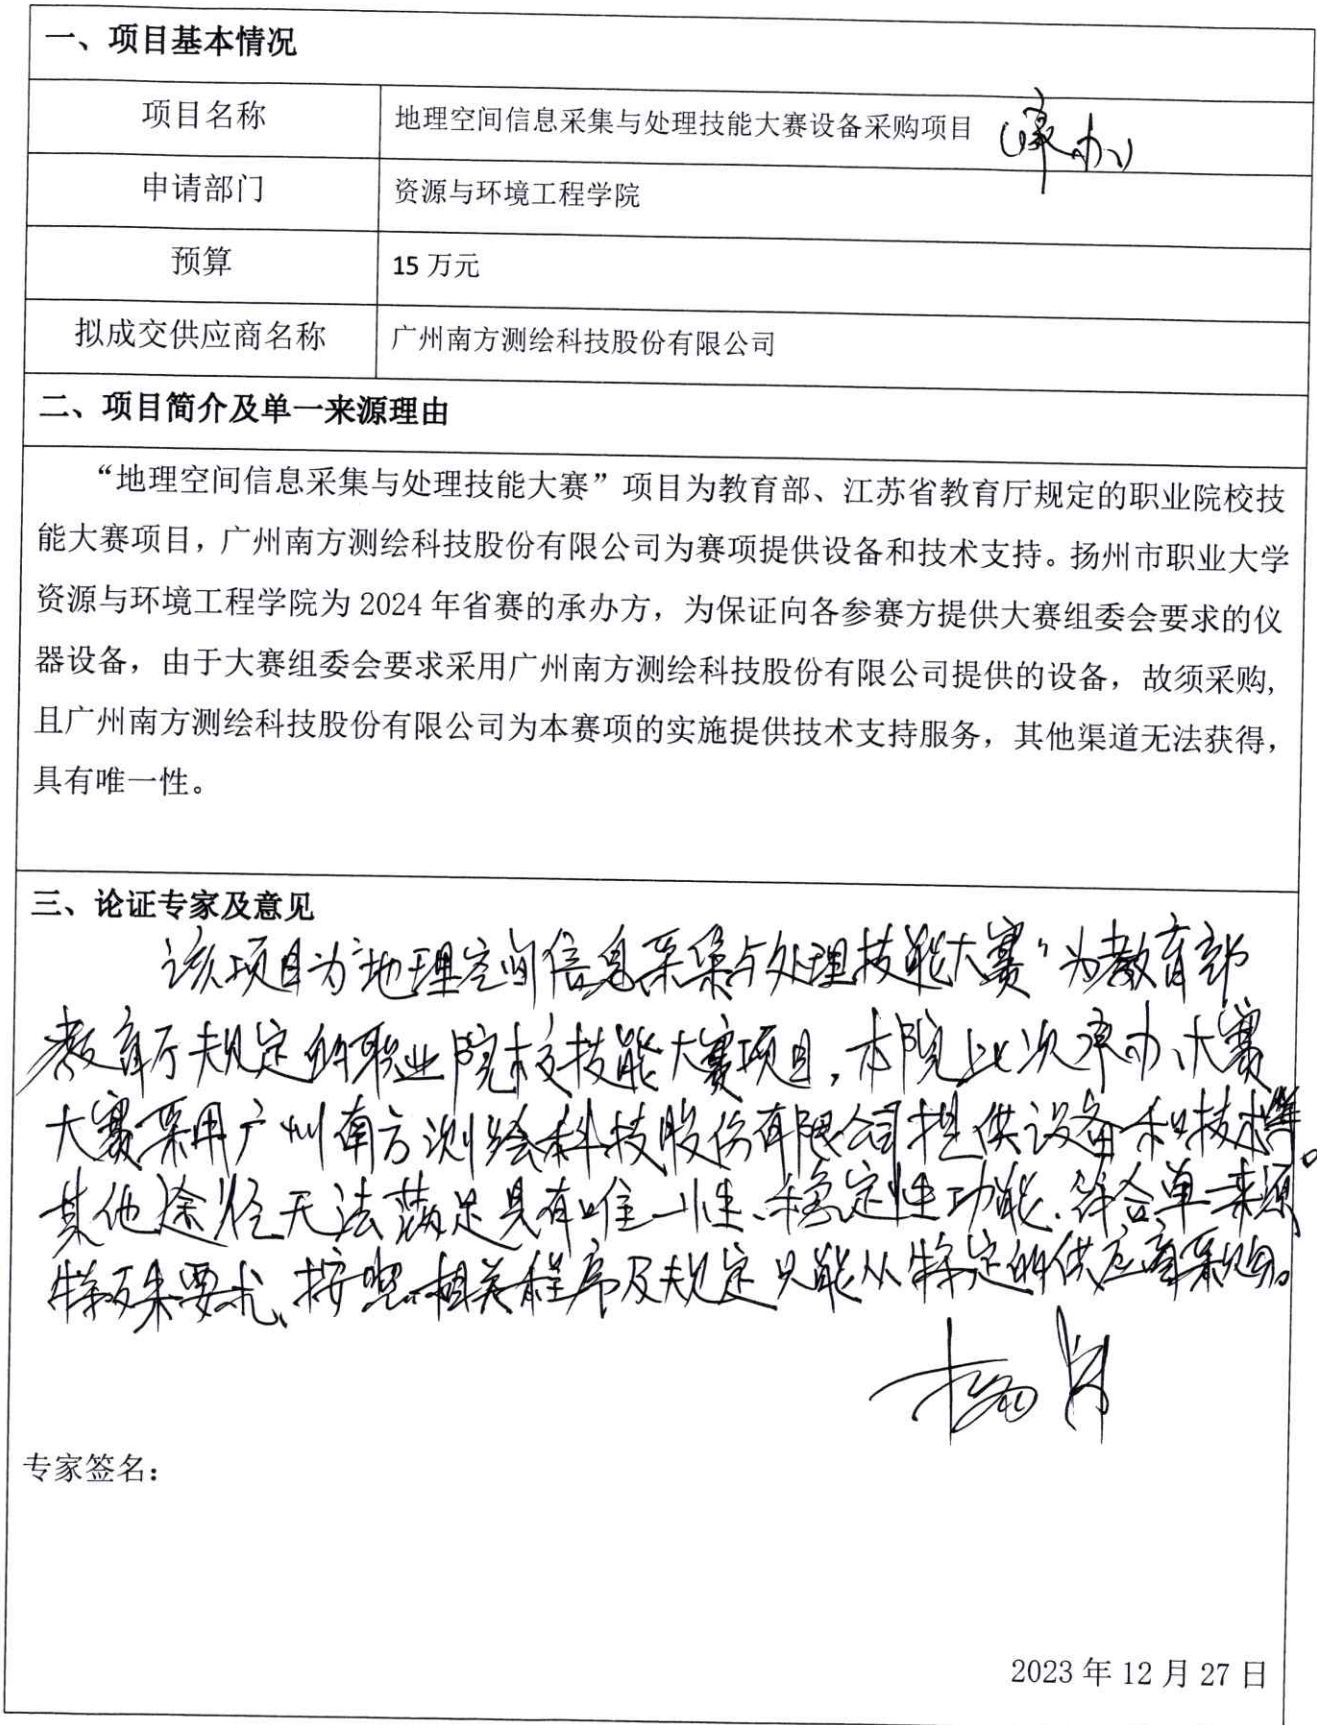 一、项目基本情况
项目名称 地理空间信息采集与处理技能大赛设备采购项目 (承办)
申请部门 资源与环境工程学院
预算 15 万元
拟成交供应商名称 广州南方测绘科技股份有限公司
二、项目简介及单一来源理由
“地理空间信息采集与处理技能大赛”项目为教育部、江苏省教育厅规定的职业院校技
能大赛项目，广州南方测绘科技股份有限公司为赛项提供设备和技术支持。扬州市职业大学
资源与环境工程学院为 2024 年省赛的承办方，为保证向各参赛方提供大赛组委会要求的仪
器设备，由于大赛组委会要求采用广州南方测绘科技股份有限公司提供的设备，故须采购,
且广州南方测绘科技股份有限公司为本赛项的实施提供技术支持服务，其他渠道无法获得，
具有唯一性。
三、论证专家及意见
该项目为“地理空间信息采集与处理技能大赛”为教育部
教育厅规定的职业院校技能大赛项目，本院此次承办大赛
大赛采用广州南方测绘科技股份有限公司提供设备和技术等。
其他途径无法满足具有唯一性、稳定性功能、符合单一来源
特殊要求、按照相关程序及规定只能从特定的供应商采购。
专家签名：
2023 年 12 月 27 日